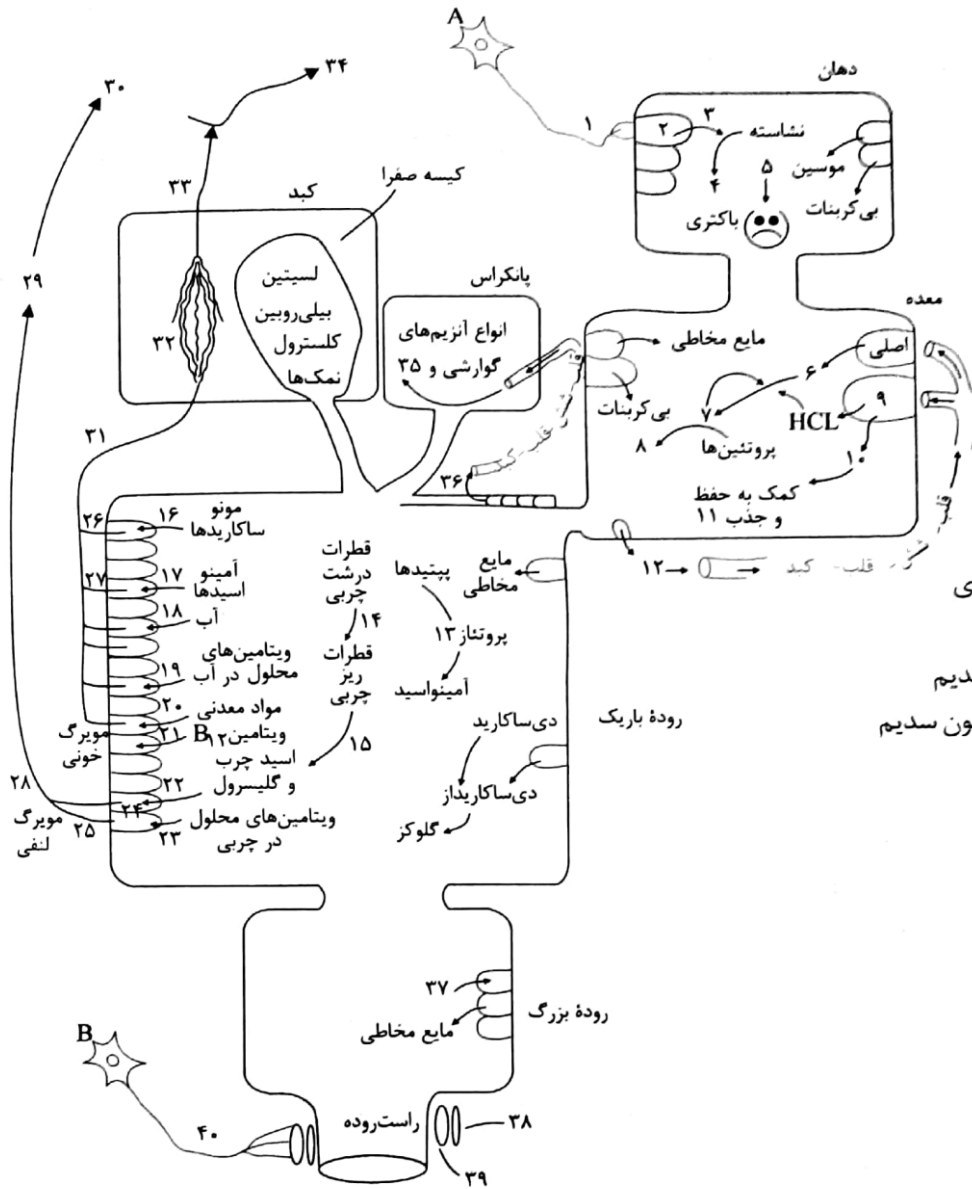 A
دهان
۱
۲
۳
نشاسته
۴
۵
موسین
بی‌کربنات
باکتری
۳۴
۳۰
۳۳
کبد
کیسه صفرا
۲۹
۳۲
لسیتین
بیلی‌روبین
کلسترول
نمک‌ها
پانکراس
انواع آنزیم‌های
گوارشی و ۳۵
معده
مایع مخاطی
بی‌کربنات
اصلی
۶
۷
۹
HCL
پروتئین‌ها
۸
۱۰
کمک به حفظ
و جذب ۱۱
قلب - کبد
۳۶
۱۲
قلب - کبد
قلب
۳۱
۲۶
۱۶
مونو
ساکاریدها
۲۷
۱۷
آمینو
اسیدها
۱۸
آب
۱۹
ویتامین‌های
محلول در آب
۲۰
مواد معدنی
مویرگ
خونی
۲۱
ویتامین B۱۲
اسید چرب
و گلیسرول
۲۲
۲۸
۲۴
۲۵
مویرگ
لنفی
۲۳
ویتامین‌های محلول
در چربی
قطرات
درشت
چربی
۱۴
قطرات
ریز
چربی
۱۵
پپتیدها
پروتئاز ۱۳
آمینواسید
مایع
مخاطی
دی‌ساکارید
دی‌ساکاریداز
گلوکز
رودهٔ باریک
ی
دیم
ون سدیم
۳۷
مایع مخاطی
رودهٔ بزرگ
B
۴۰
راست‌روده
۳۸
۳۹